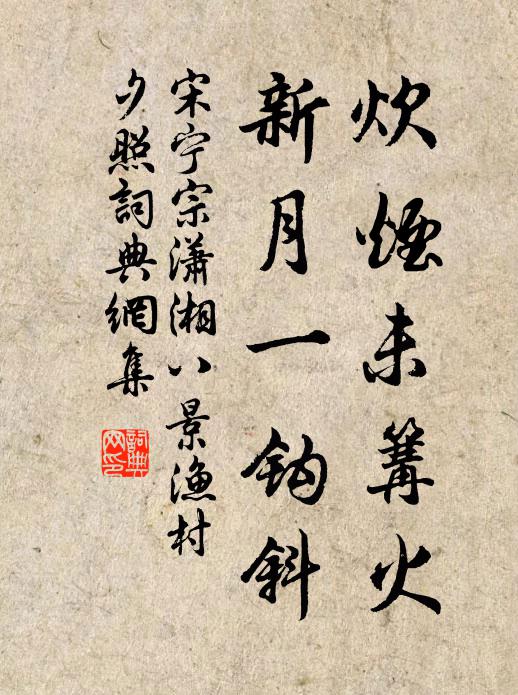 炊煙未篝火
新月一鈎斜
宋宁宗瀟湘八景漁村
夕照詞典網集
詞典
网印